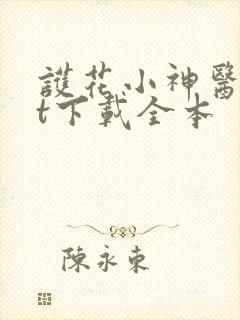 護花小神醫
t下載全本
陳永東